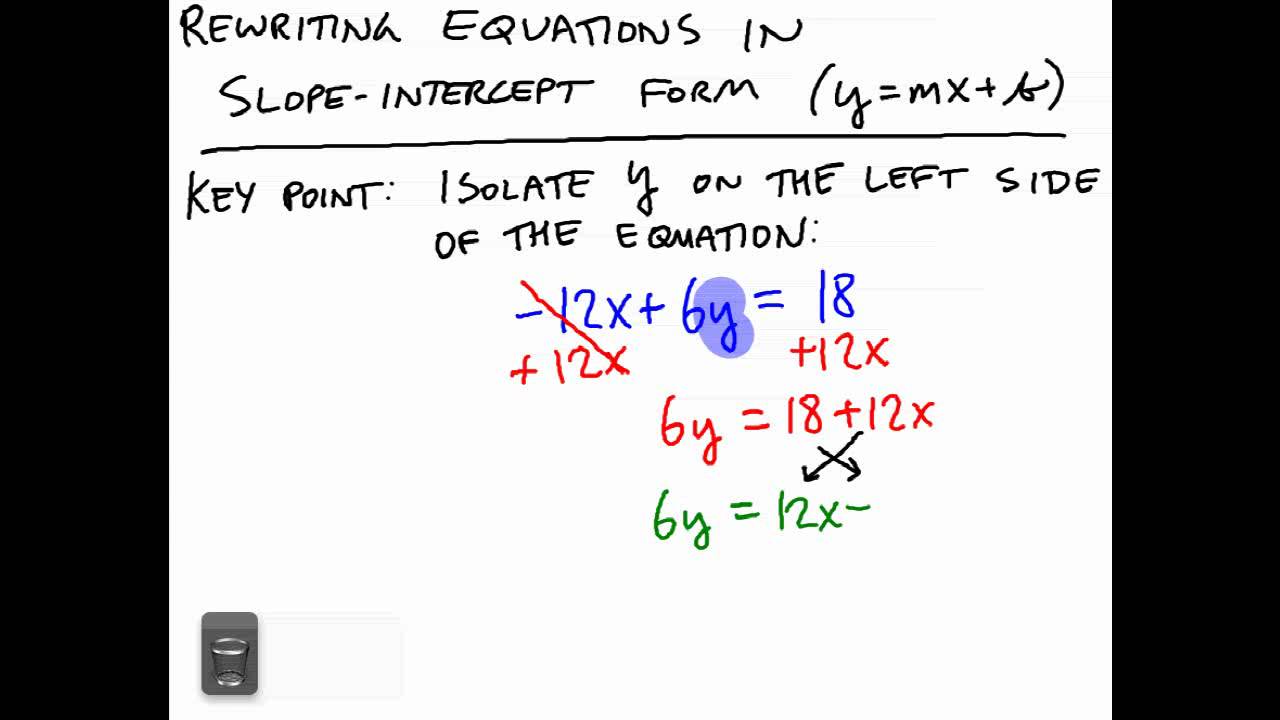 REWRITING EQUATIONS IN
SLOPE-INTERCEPT FORM (y=mx+b)
KEY POINT: ISOLATE y ON THE LEFT SIDE
OF THE EQUATION:
-12x+6y=18
+12x +12x
6y=18+12x
6y=12x-